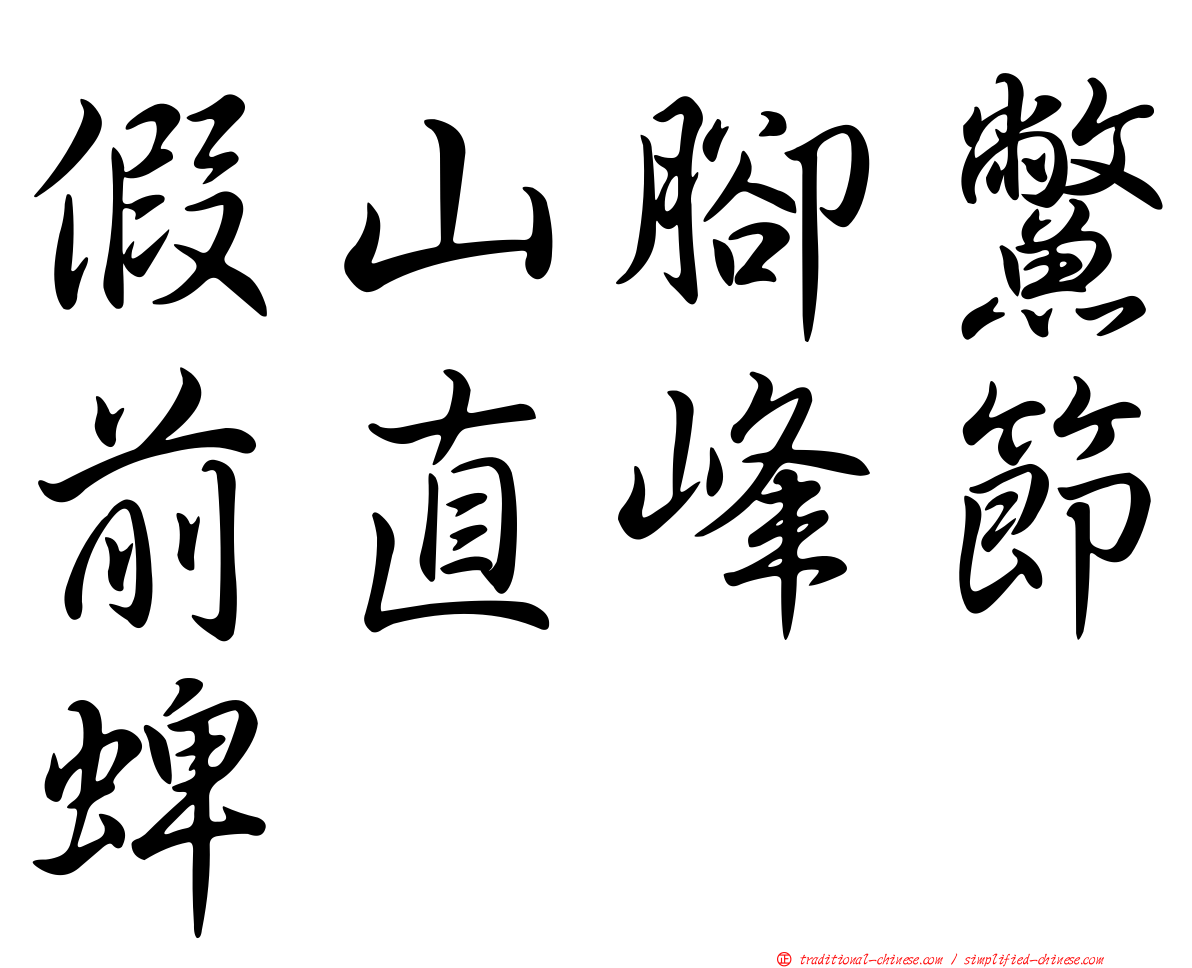 假山腳鱉
前直峰節
蜱
正 traditional-chinese.com / simplified-chinese.com